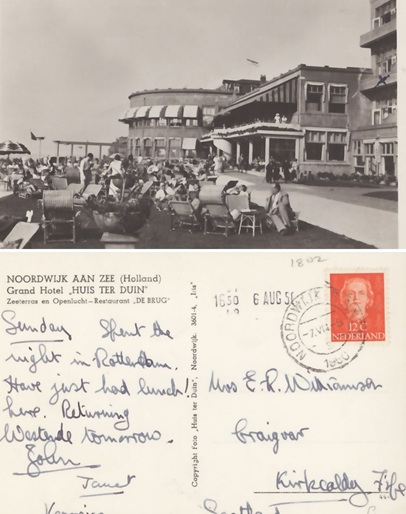 1802
NOORDWIJK AAN ZEE (Holland)
Grand Hotel „HUIS TER DUIN"
Zeeterras en Openlucht-Restaurant „DE BRUG"
6 AUG 5
NOORDWIJK
1950
12 C
NEDERLAND
Copyright Foto „Huis ter Duin", Noordwijk. 3601-4, „Isla"
Sunday Spent the
night in Rotterdam.
Have just had lunch
here. Returning
Westende tomorrow.
John
Janet
Mrs E. R. Williamson
Craigvar
Kirkcaldy Fife